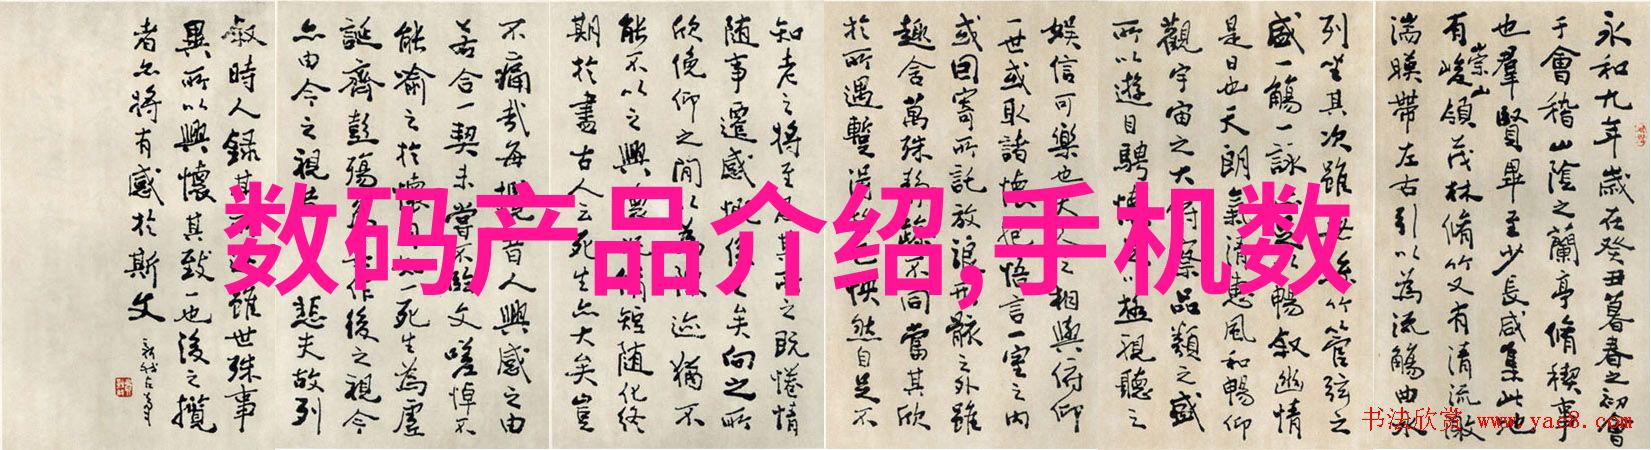 永和九年歲在癸丑暮春之初會
于會稽山陰之蘭亭脩稧事
也羣賢畢至少長咸集此地
有崇山峻領茂林脩竹又有清流激
湍暎帶左右引以為流觴曲水
列坐其次雖無絲竹管弦之
盛一觴一詠亦足以暢敘幽情
是日也天朗氣清惠風和暢仰
觀宇宙之大俯察品類之盛
所以遊目騁懷足以極視聽之
娛信可樂也夫人之相與俯仰
一世或取諸懷抱悟言一室之內
或因寄所託放浪形骸之外雖
趣舍萬殊靜躁不同當其欣
於所遇暫得於己怏然自足不
知老之將至及其所之既惓情
隨事遷感慨係之矣向之所
欣俛仰之間以為陳迹猶不
能不以之興懷況脩短隨化終
期於盡古人云死生亦大矣豈
不痛哉每攬昔人興感之由
若合一契未嘗不臨文嗟悼不
能喻之於懷固知一死生為虛
誕齊彭殤為妄作後之視今
亦由今之視昔悲夫故列
敘時人錄其所述雖世殊事
異所以興懷其致一也後之攬
者亦將有感於斯文
数码产品介绍,手机数
书法欣赏 www.yac8.com